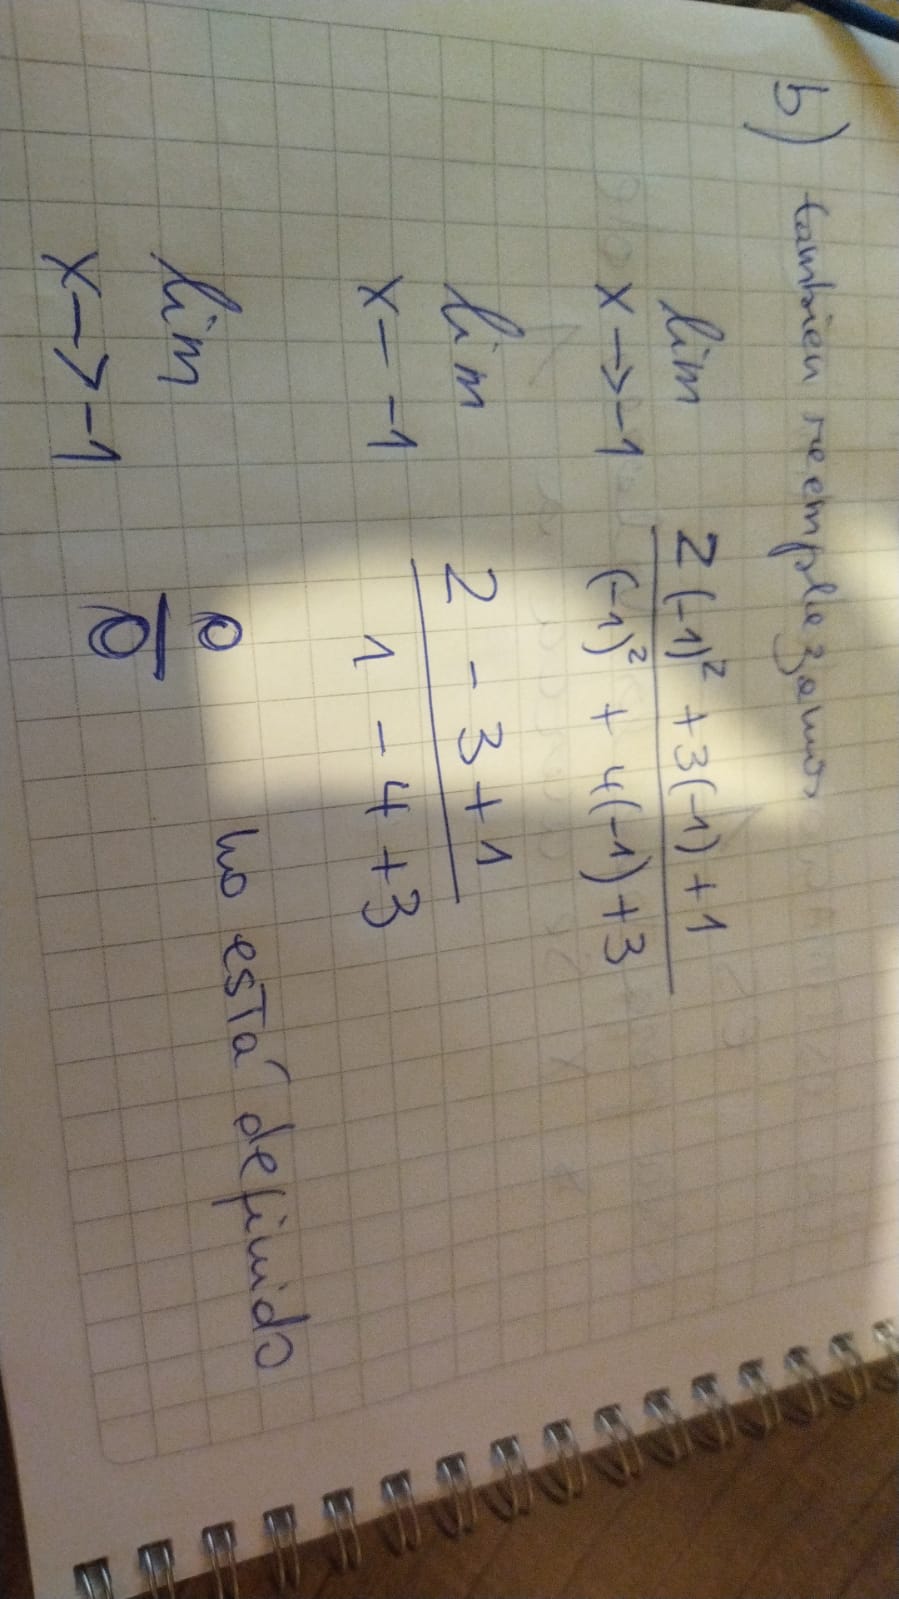 b) también reemplazamos
lim 2(-1)² + 3(-1) + 1
x→-1 (-1)² + 4(-1) + 3
lim 2 - 3 + 1
x — -1 1 - 4 + 3
lim 0
x→-1 0 no está definido